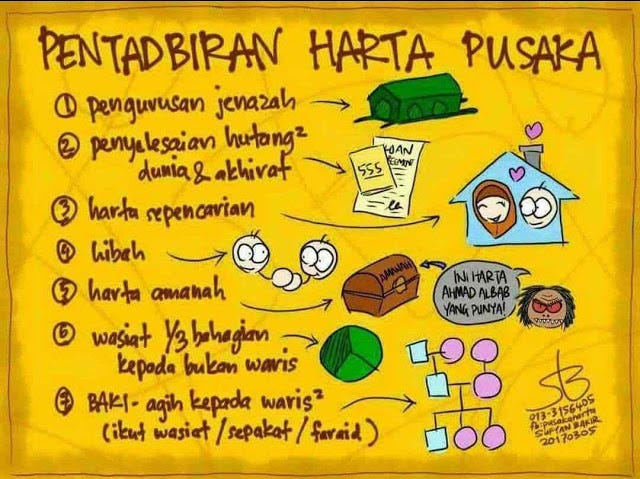 PENTADBIRAN HARTA PUSAKA
① pengurusan jenazah
② penyelesaian hutang²
dunia & akhirat
555
LOAN
③ harta sepencarian
④ hibah
⑤ harta amanah
AMANAH
INI HARTA
AHMAD ALBAB
YANG PUNYA!
⑥ wasiat 1/3 bahagian
kepada bukan waris
⑦ BAKI - agih kepada waris²
(ikut wasiat / sepakat / faraid)
013-3156405
fb:pusakaharta
SUFYAN BAKIR
20170305